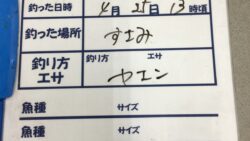 釣った日時 4月25日13時頃
釣った場所 すさみ
釣り方
エサ
釣り方
エサ
ヤエン
魚種 サイズ
魚種 サイズ